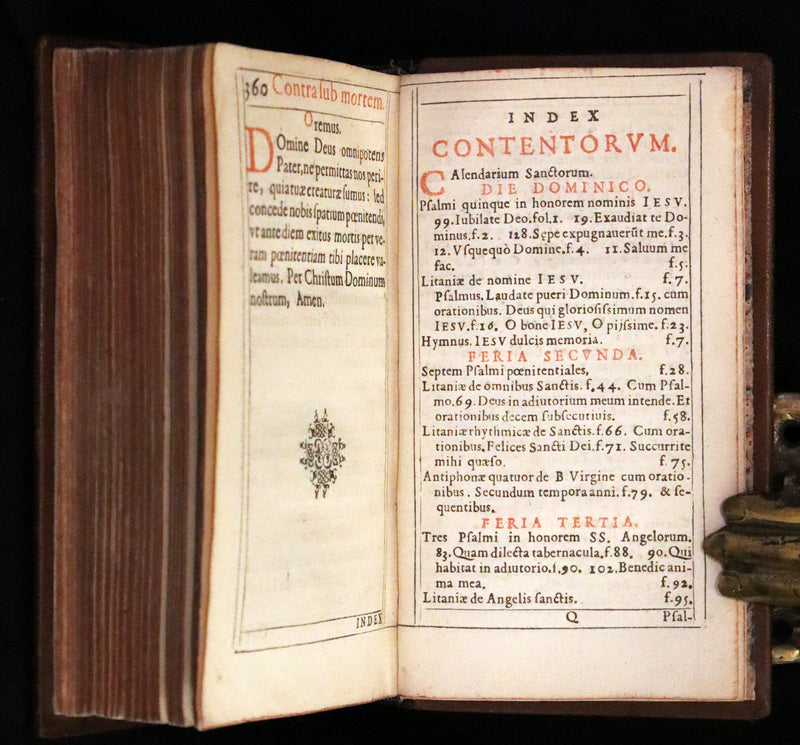 360 Contra sub mortem.
Oremus.
DOmine Deus omnipotens
Pater, ne permittas nos peri-
re, quia tuæ creaturæ sumus: sed
concede nobis spatium pœnitendi,
vt ante diem exitus mortis per ve-
ram pœnitentiam tibi placere va-
leamus. Per Christum Dominum
nostrum, Amen.
INDEX
INDEX
CONTENTORVM.
CAlendarium Sanctorum.
DIE DOMINICO.
Psalmi quinque in honorem nominis IESV.
99. Iubilate Deo. fol. 1. 19. Exaudiat te Do-
minus. f. 2. 128. Sępe expugnauerūt me. f. 3.
12. Vsquequò Domine. f. 4. 11. Saluum me
fac. f. 5.
Litaniæ de nomine IESV. f. 7.
Psalmus. Laudate pueri Dominum. f. 15. cum
orationibus. Deus qui gloriosissimum nomen
IESV. f. 16. O bone IESV, O pijssime. f. 23.
Hymnus. IESV dulcis memoria. f. 7.
FERIA SECVNDA.
Septem Psalmi pœnitentiales, f. 28.
Litaniæ de omnibus Sanctis. f. 44. Cum Psal-
mo. 69. Deus in adiutorium meum intende. Et
orationibus decem subsecutiuis. f. 58.
Litaniæ rhythmicæ de Sanctis. f. 66. Cum ora-
tionibus. Felices Sancti Dei. f. 71. Succurrite
mihi quæso. f 75.
Antiphonæ quatuor de B Virgine cum oratio-
nibus. Secundum tempora anni. f. 79. & se-
quentibus.
FERIA TERTIA.
Tres Psalmi in honorem SS. Angelorum.
83. Quam dilecta tabernacula. f. 88. 90. Qui
habitat in adiutorio. f. 90. 102. Benedic ani-
ma mea. f. 92.
Litaniæ de Angelis sanctis. f. 95.
Q Psal-